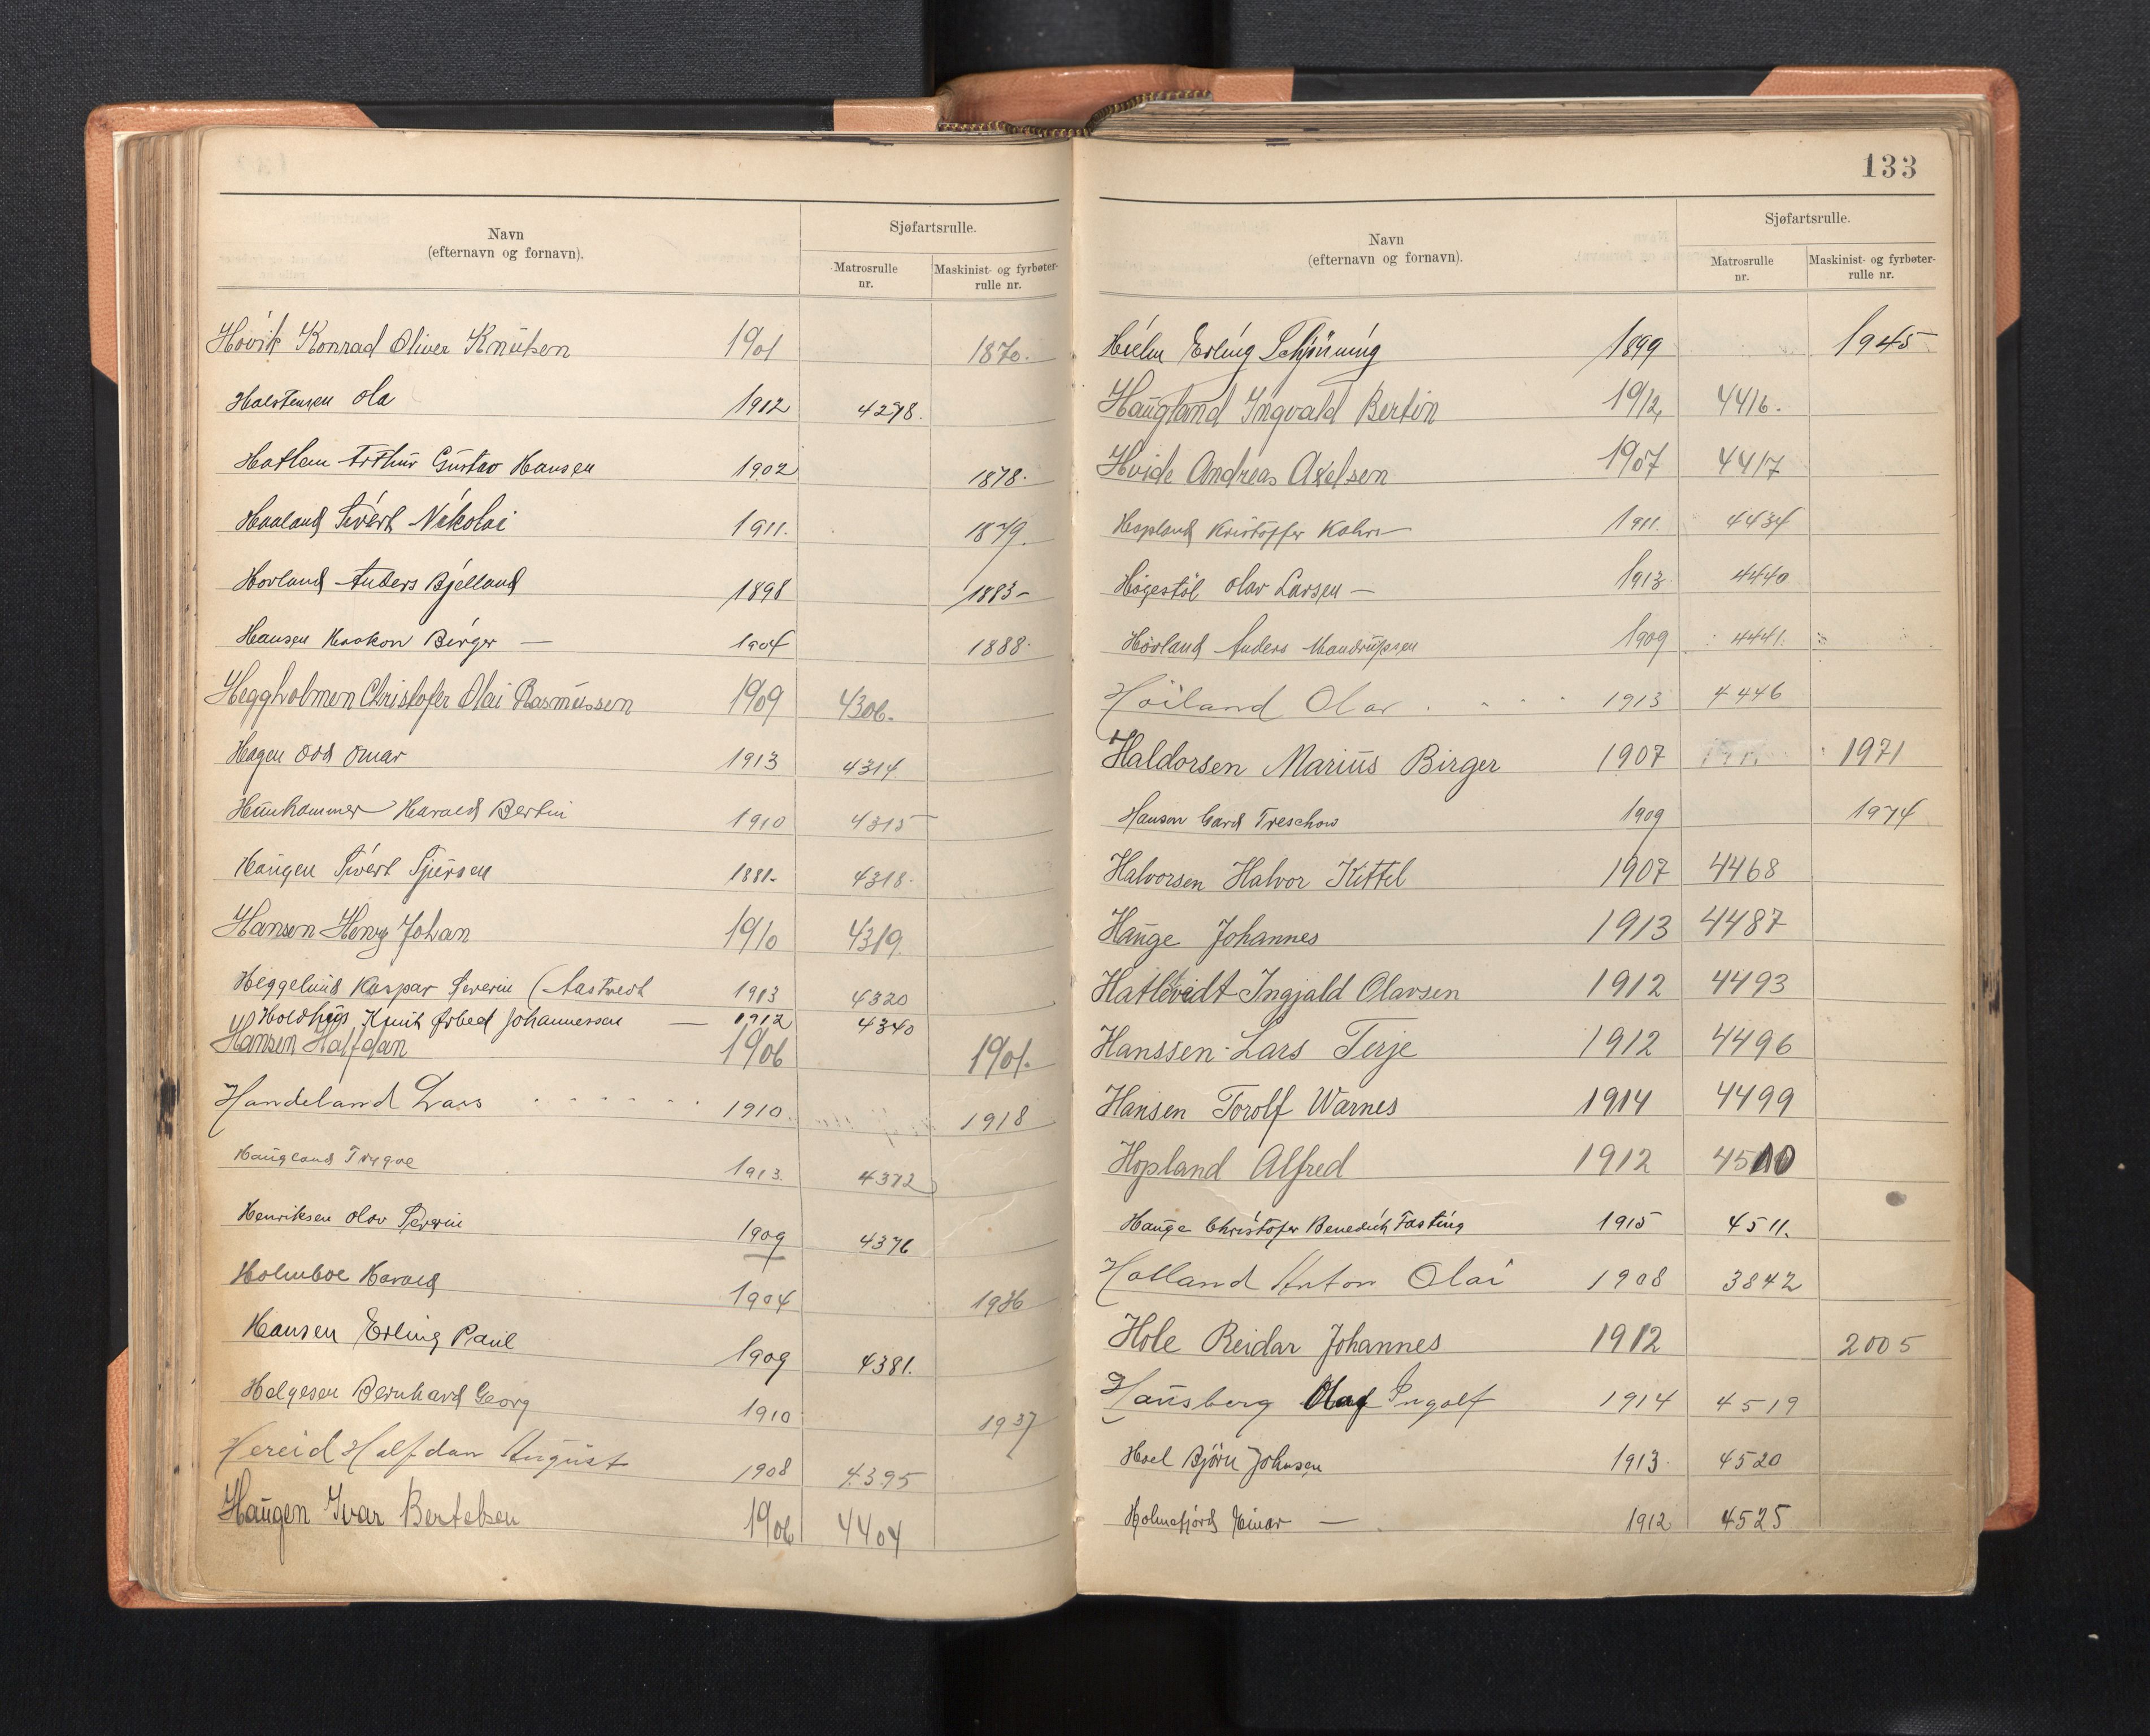 Navn
(efternavn og fornavn).
Sjøfartsrulle.
Matrosrulle
nr.
Maskinist- og fyrbøter-
rulle nr.
Hovik Konrad Oliver Knutsen 1901 1870.
Halstensen Ola 1912 4298.
Hatlem Arthur Gustav Hansen 1902 1878.
Haaland Sivert Nikolai 1911. 1879.
Hovland Anders Bjelland 1898 1883-
Hansen Haakon Birger — 1904 1888.
Heggholmen Christofer Olai Rasmussen 1909 4306.
Hagen Odd Omar 1913 4314
Hunhammer Harald Bertin 1910 4315
Haugen Sivert Sjursen 1881. 4318.
Hansen Henry Johan 1910 4319.
Heggelund Kaspar Severin (Aastvedt 1913 4320
Holdhus Knut Ørbed Johannessen — 1912 4340
Hansen Halfdan 1906 1901.
Handeland Lars 1910. 1918
Haugland Trygve 1913. 4372
Henriksen Olav Severin 1909 4376
Holmboe Harald 1904 1936
Hansen Erling Paul 1909 4381.
Helgesen Bernhard Georg 1910 1937
Hereid Halfdan August 1908 4395
Haugen Ivar Bertelsen 1906 4404
133
Navn
(efternavn og fornavn).
Sjøfartsrulle.
Matrosrulle
nr.
Maskinist- og fyrbøter-
rulle nr.
Hielm Erling Schjönning 1899 1945
Haugland Ingvald Bertin 1912, 4416.
Hvide Andreas Axelsen 1907 4417
Hopland Kristoffer 1911. 4434
Högestöl Olav Larsen — 1913. 4440
Hövland Anders Mandrupsen 1909 4441.
Höiland Olav 1913 4446
Haldorsen Marius Birger 1907 1971
Hanson Gard Treschow 1909 1974
Halvorsen Halvor Kittel 1907 4468
Hauge Johannes 1913 4487
Hatlevidt Ingjald Olavsen 1912 4493
Hanssen Lars Terje 1912 4496
Hansen Torolf Warnes 1914 4499
Hopland Alfred 1912 4510
Hauge Christofer Benedich Fasting 1915 4511.
Holland Anton Olai 1908 3842
Hole Reidar Johannes 1912 2005
Hausberg Olaf Ingolf 1914 4519
Hoel Björn Johnsen 1913. 4520
Holmefjord Einar — 1912 4525